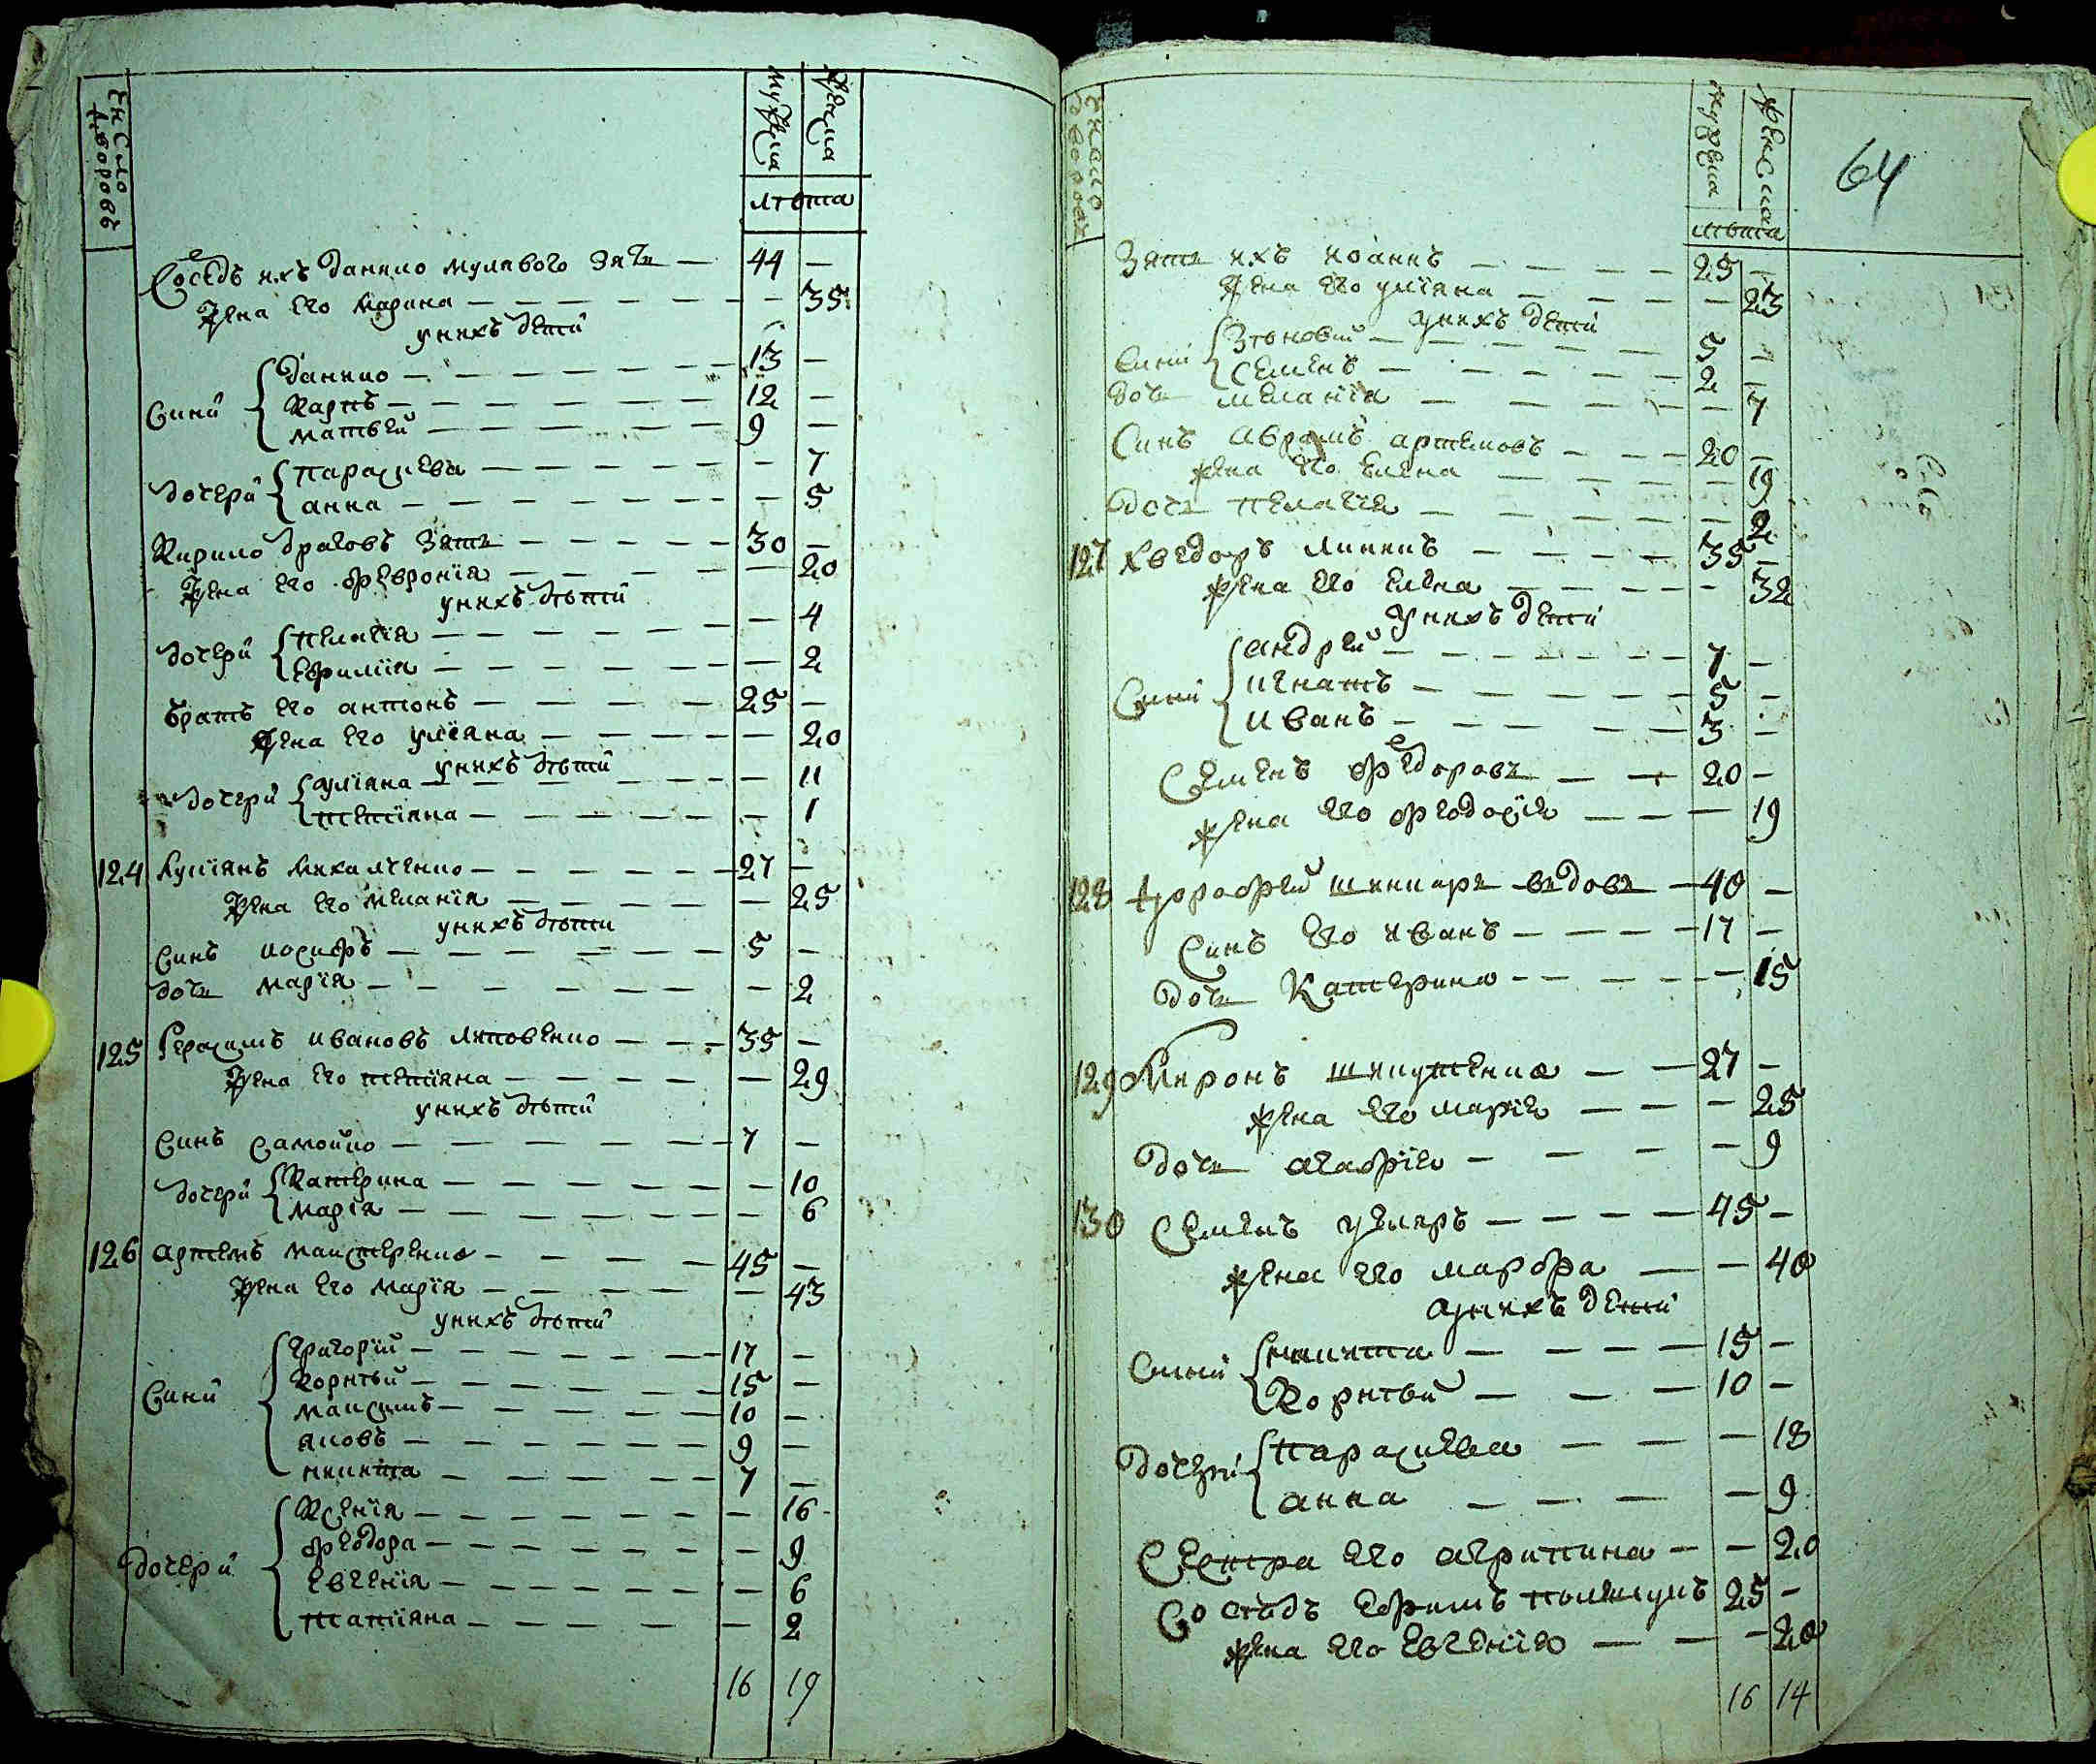 число дворовъ
мужеска
женска
лѣта
Соседъ ихъ данило мулявого зять — 44 —
Жена его марина — 35
у нихъ дети
Сини
данило — 13 —
Карпъ — 12 —
матвей — 9 —
дочери
параскева — 7
анна — 5
Кирило драговъ зять — 30 —
Жена его февронїя — 20
у нихъ дѣти
дочери
пелагїя — 4
Ефимїя — 2
братъ его антонъ — 25 —
Жена его улїяна — 20
у нихъ дѣти
дочери
улїяна — 11
тетїяна — 1
124 Лукїянъ михалченко — 27 —
Жена его меланїя — 25
у нихъ дѣти
Синъ иосифъ — 5 —
дочь марїя — 2
125 Герасимъ ивановъ литовченко — 35 —
Жена его тетїяна — 29
у нихъ дѣти
Синъ самойло — 7 —
дочери
Катерина — 10
марїя — 6
126 артемъ майстренко — 45 —
Жена его марїя — 43
у нихъ дѣти
Сини
григорїй — 17 —
Корнѣй — 15 —
максимъ — 10 —
яковъ — 9 —
никита — 7 —
дочери
Ксенїя — 16
феодора — 9
Евгенїя — 6
татїяна — 2
16 19
число дворовъ
мужеска
женска
лѣта
64
Зять ихъ иоаннъ — 25 —
Жена его улїяна — 23
у нихъ дети
Сини
Зѣновий — 5 —
Семенъ — 2 —
дочь меланїя — 7
Синъ аврамъ артемовъ — 20 —
жена его елена — 19
дочь пелагїя — 2
127 Хведоръ — 35 —
жена его елена — 32
у нихъ дети
Сини
андрей — 7 —
игнатъ — 5 —
иванъ — 3 —
Семенъ федоровъ — 20 —
жена его феодосїя — 19
128 дорофей шинкарь вдовъ — 40 —
Синъ его иванъ — 17 —
дочь Катерина — 15
129 Миронъ — 27 —
жена его марїя — 25
дочь агафїя — 9
130 Семенъ — 45 —
жена его марфа — 40
у нихъ дети
Сини
никита — 15 —
Корнѣй — 10 —
дочери
параскева — 18
анна — 9
Сестра его агрипина — 20
Сосѣдъ ефимъ — 25 —
жена его Евгенїя — 20
16 14